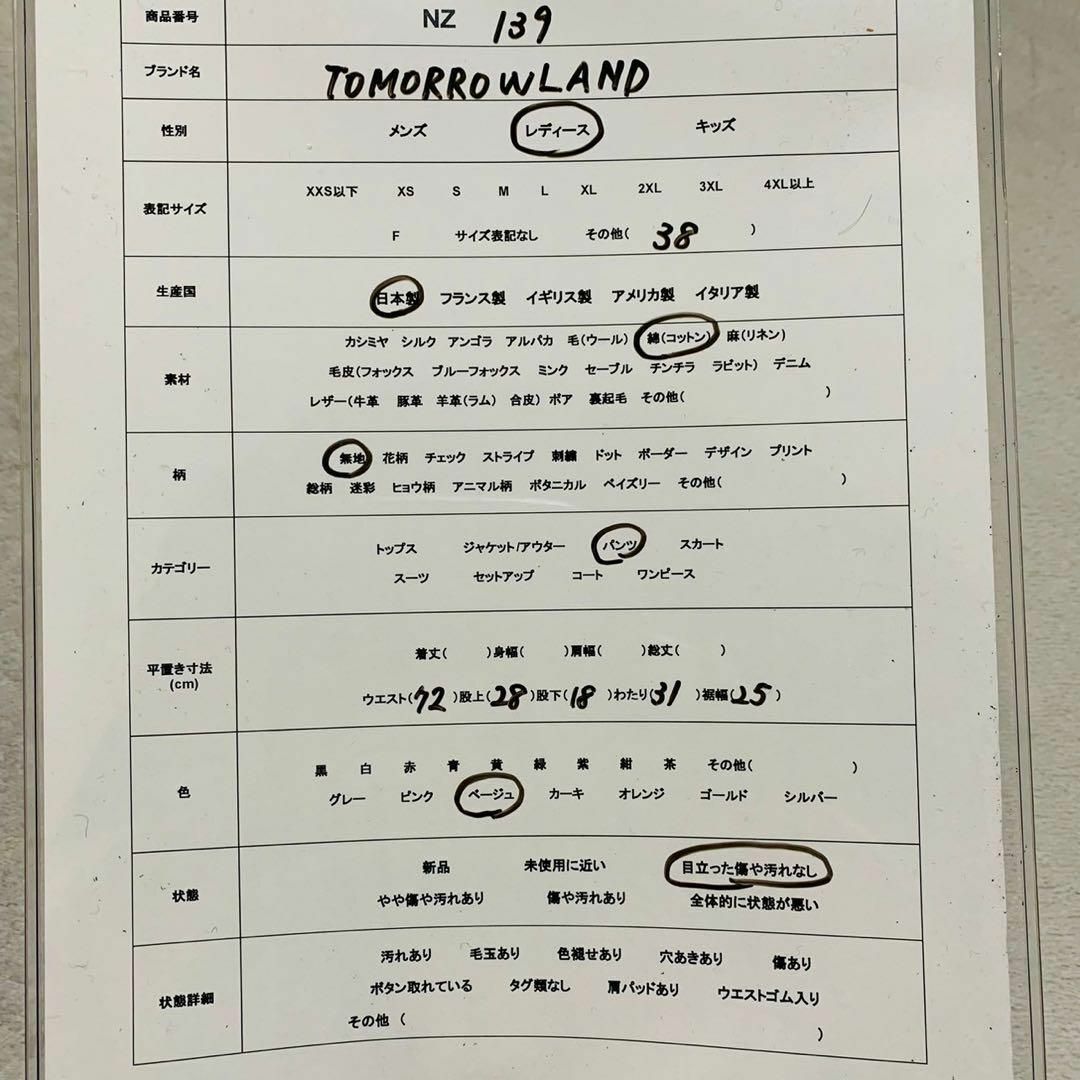 商品番号 NZ 139
ブランド名 TOMORROWLAND
性別 メンズ レディース キッズ
表記サイズ
XXS以下 XS S M L XL 2XL 3XL 4XL以上
F サイズ表記なし その他( 38 )
生産国 日本製 フランス製 イギリス製 アメリカ製 イタリア製
素材
カシミヤ シルク アンゴラ アルパカ 毛(ウール) 綿(コットン) 麻(リネン)
毛皮(フォックス ブルーフォックス ミンク セーブル チンチラ ラビット) デニム
レザー(牛革 豚革 羊革(ラム) 合皮) ボア 裏起毛 その他( )
柄
無地 花柄 チェック ストライプ 刺繍 ドット ボーダー デザイン プリント
総柄 迷彩 ヒョウ柄 アニマル柄 ボタニカル ペイズリー その他( )
カテゴリー
トップス ジャケット/アウター パンツ スカート
スーツ セットアップ コート ワンピース
平置き寸法
(cm)
着丈( )身幅( )肩幅( )総丈( )
ウエスト(72)股上(28)股下(18)わたり(31)裾幅(25)
色
黒 白 赤 青 黄 緑 紫 紺 茶 その他( )
グレー ピンク ベージュ カーキ オレンジ ゴールド シルバー
状態
新品 未使用に近い 目立った傷や汚れなし
やや傷や汚れあり 傷や汚れあり 全体的に状態が悪い
状態詳細
汚れあり 毛玉あり 色褪せあり 穴あきあり 傷あり
ボタン取れている タグ類なし 肩パッドあり ウエストゴム入り
その他 ( )